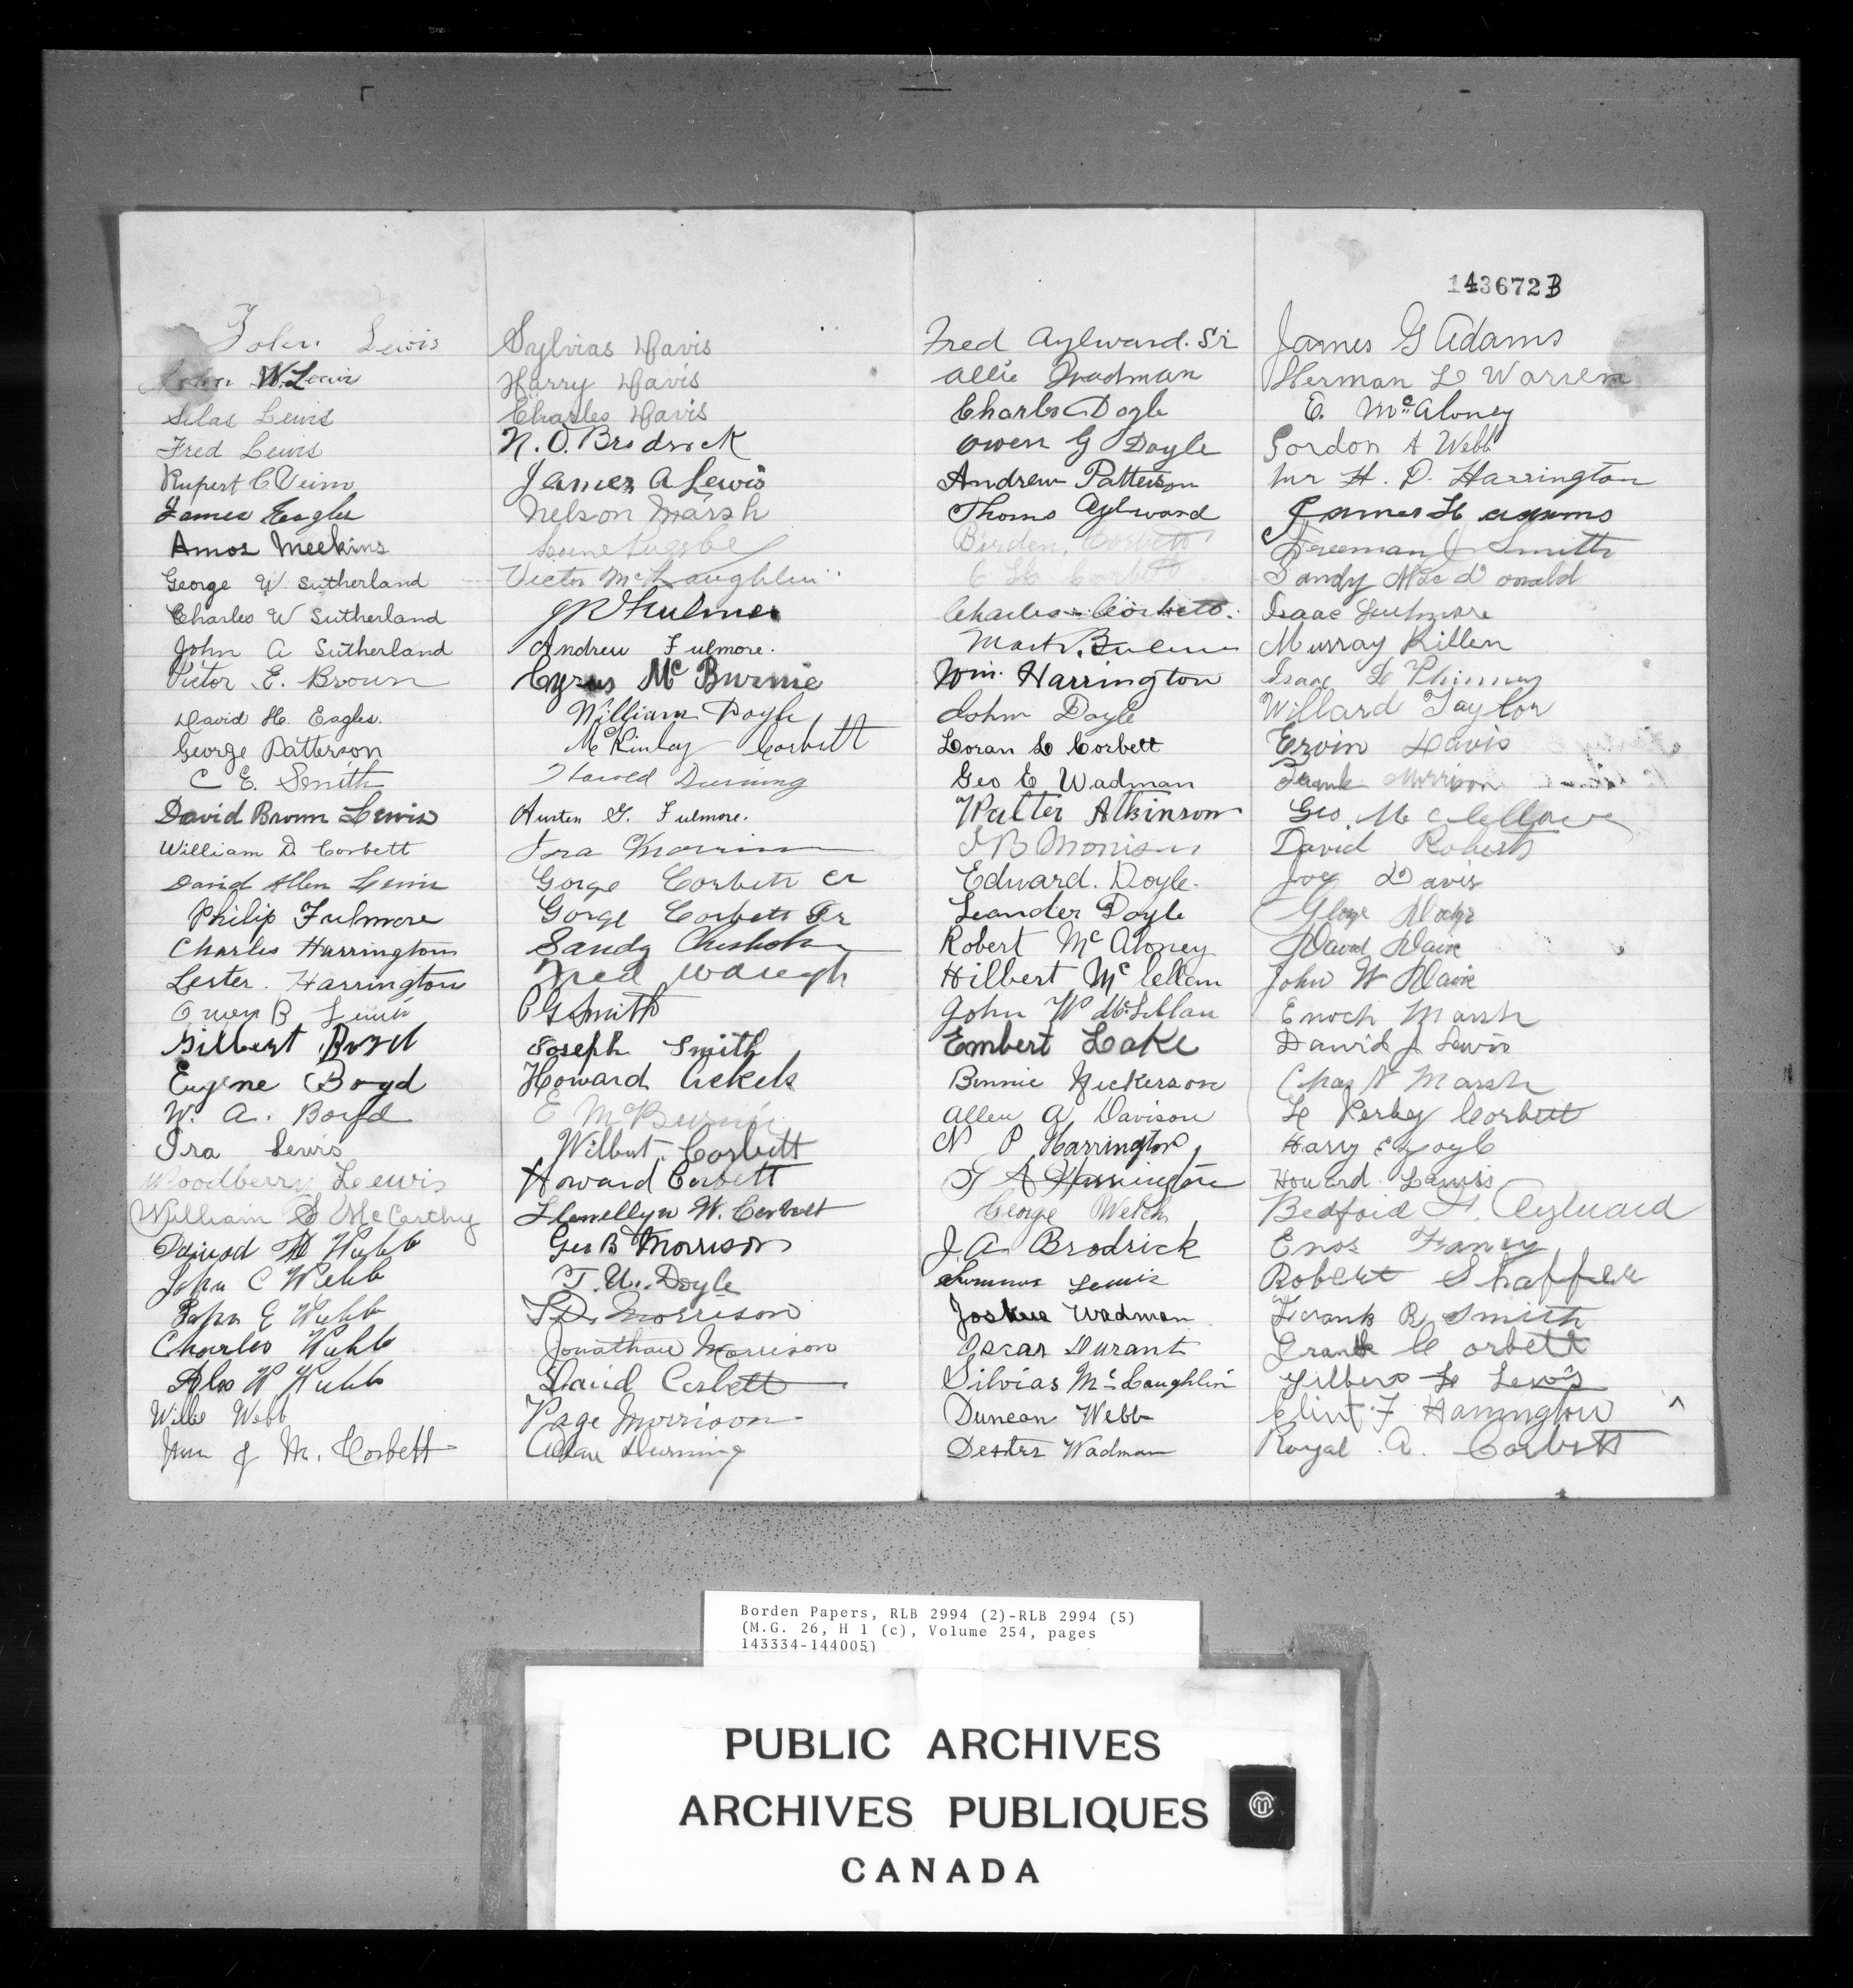 143672B
John Lewis
John W. Lewis
Silas Lewis
Fred Lewis
Rupert C
James Eagles
Amos Meekins
George W. Sutherland
Charles W Sutherland
John A Sutherland
Victor E. Brown
David H. Eagles.
George Patterson
C E. Smith
David Brown Lewis
William D. Corbett
David Allen Lewis
Philip Fulmore
Charles Harrington
Lester. Harrington
Owen B Lewis
Gilbert Boyd
Eugene Boyd
W. A. Boyd
Ira Lewis
Woodberry Lewis
William S McCarthy
Webb
John C Webb
John E Webb
Charles Webb
W Webb
Webb
M. Corbett
Sylvias Davis
Harry Davis
Charles Davis
N. O. Brodrick
James A Lewis
Nelson Marsh
Victor McLaughlin
Fulmer
Andrew Fulmore.
Cyrus McBurnie
William Doyle
McKinley Corbett
Harold Durning
Austin G. Fulmore.
Ira Morrison
Gorge Corbett
Gorge Corbett Jr
Sandy Chisholm
Fred Waugh
P G Smith
Joseph Smith
Howard
E McBurnie
Wilbut Corbett
Howard Corbett
Llewellyn W. Corbett
Geo B Morrison
T. U. Doyle
Morrison
Jonathan Morrison
David Corbett
Page Morrison
Durning
Fred Aylward. Sr
Allie Wadman
Charles Doyle
Owen G Doyle
Andrew Patterson
Thoms Aylward
Burden, Corbett
C Corbett
Charles Corbett.
Mark
Wm. Harrington
John Doyle
Loran L Corbett
Geo E Wadman
Walter Atkinson
B Morrison
Edward. Doyle.
Leander Doyle
Robert McAloney
Hilbert McLellan
John W McLellan
Embert Lake
Bennie Nickerson
Allen A Davison
N P Harrington
A Harrington
George Welch
J. A. Brodrick
Lewis
Joshua Wadman
Oscar Durant
Silvias McLaughlin
Duncan Webb
Dexter Wadman
James G Adams
Herman L Warren
E. McAloney
Gordon A Webb
Mr H. D. Harrington
James H Adams
Freeman J Smith
Sandy MacDonald
Isaac Fulmore
Murray Killen
Isaac Phinney
Willard Taylor
Ervin Davis
Frank Morrison
Geo. McClellan
David Roberts
Joe Davis
George
David Davis
John W Davis
Enoch Marsh
David J Lewis
Chas N Marsh
Corbett
Harry E Doyle
Howard Lewis
Bedford Aylward
Enos Faney
Robert Shaffer
Frank R Smith
Frank Corbett
Gilbert Lewis
Clint F Harrington
Royal A. Corbett
Borden Papers, RLB 2994 (2)-RLB 2994 (5)
(M.G. 26, H 1 (c), Volume 254, pages
143334-144005)
PUBLIC ARCHIVES
ARCHIVES PUBLIQUES
CANADA